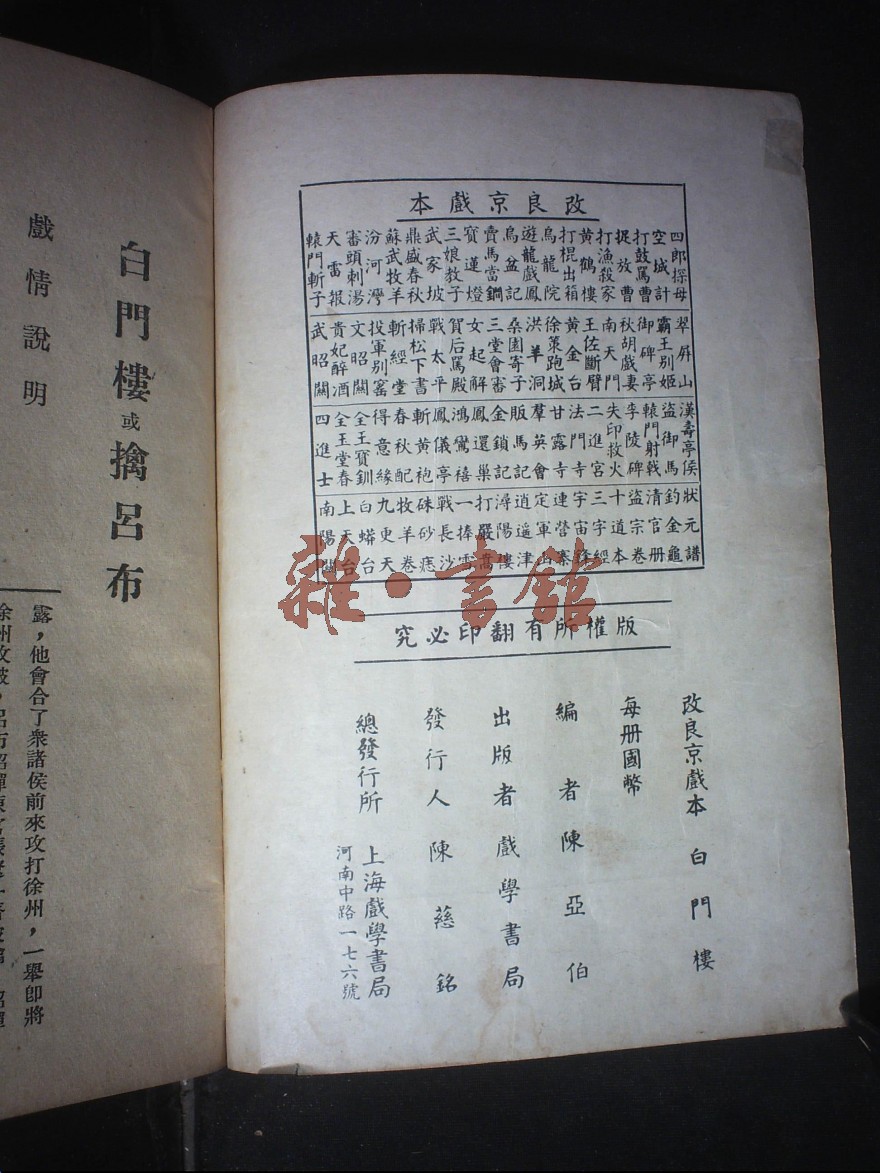 改良京戲本
四郎探母
空城計
打鼓罵曹
捉放曹
打漁殺家
黃鶴樓
打棍出箱
烏龍院
遊龍戲鳳
烏盆記
賣馬當鐧
寶蓮燈
三娘教子
武家坡
鼎盛春秋
蘇武牧羊
汾河灣
審頭刺湯
天雷報
轅門斬子
翠屏山
霸王別姬
御碑亭
秋胡戲妻
南天門
王佐斷臂
黃金台
徐策跑城
洪羊洞
桑園寄子
三堂會審
女起解
賀后罵殿
戰太平
掃松下書
斬經堂
投軍别窰
文昭關
貴妃醉酒
武昭關
漢壽亭侯
盜御馬
轅門射戟
李陵碑
失印救火
二進宮
法門寺
甘露寺
羣英會
販馬記
金鎖記
鳳還巢
鴻鸞禧
鳳儀亭
斬黃袍
春秋配
得意緣
全王寶釧
全玉堂春
四進士
狀元譜
釣金龜
清官册
盜宗卷
十道本
三字經
宇宙鋒
連營寨
定軍山
逍遥津
潯陽樓
打嚴嵩
一捧雪
戰長沙
硃砂痣
牧羊卷
九更天
白蟒台
上天台
南陽關
版權所有翻印必究
改良京戲本 白門樓
每册國幣
編者陳亞伯
出版者戲學書局
發行人陳慈銘
總發行所 上海戲學書局
河南中路一七六號
白門樓或擒呂布
戲情說明
露，他會合了衆諸侯前來攻打徐州，一舉即將
雜·書館